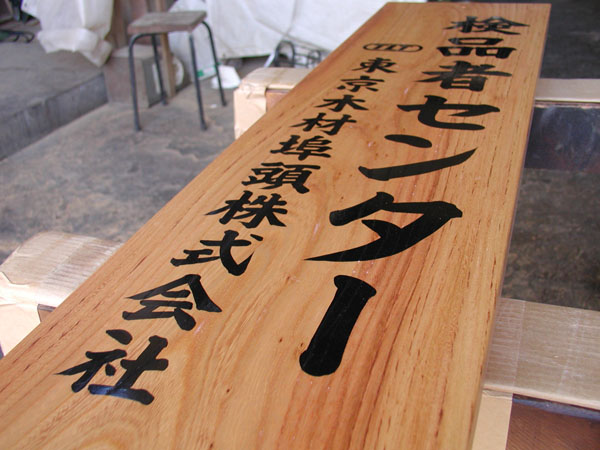 検品者センター
東京木材埠頭株式会社